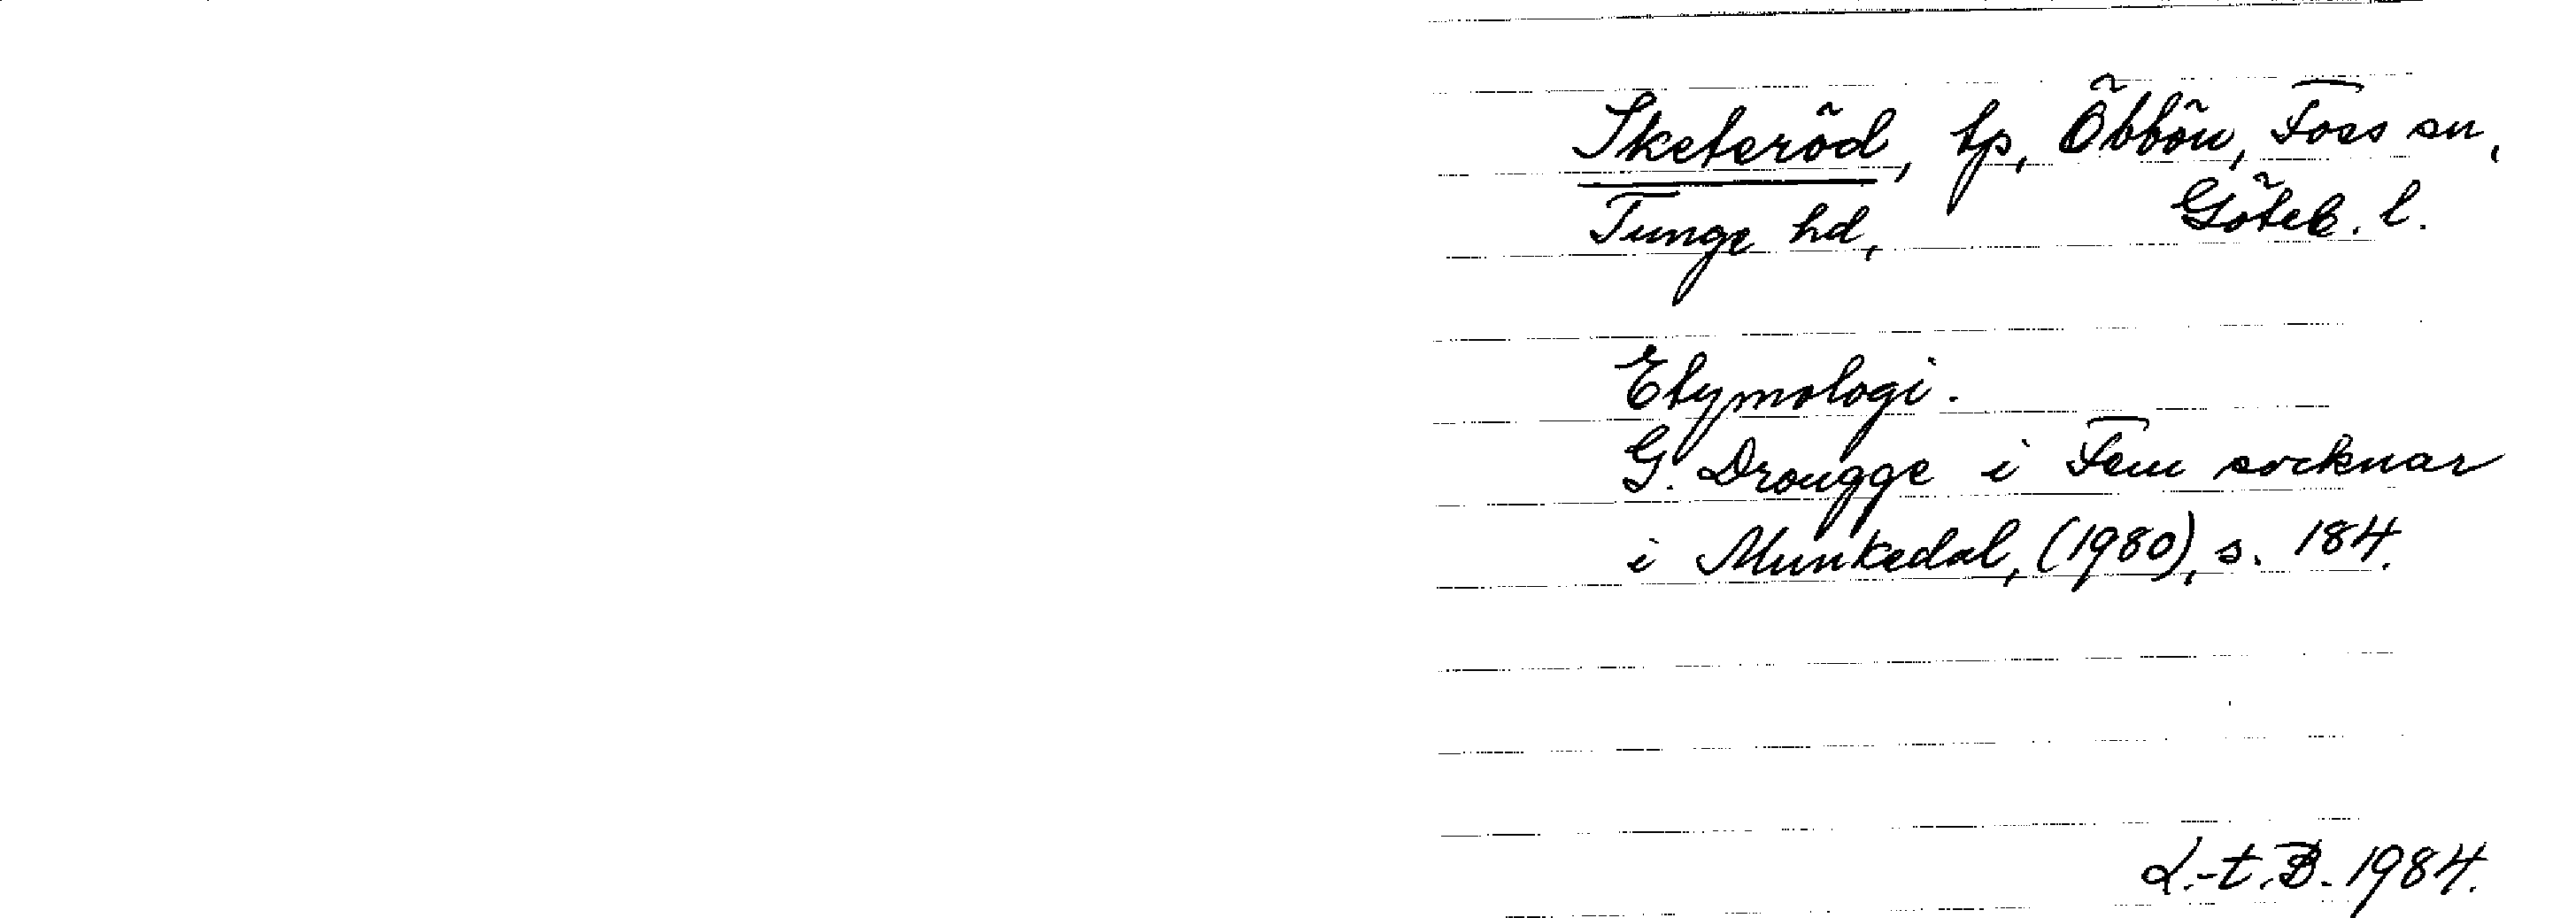 Sketeröd, tp, Öbbön, Foss sn,
Tunge hd, Göteb. l.
Etymologi.
G. Drougge i Fem socknar
i Munkedal, (1980), s. 184.
L.-t. B. 1984.